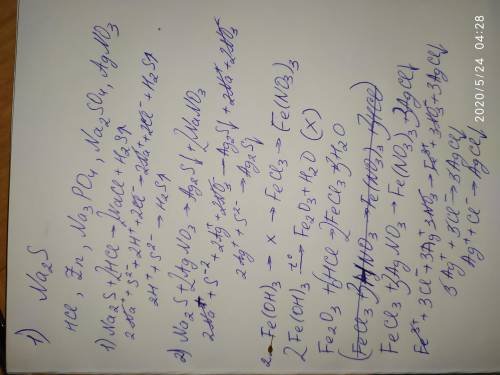 1) Na₂S
HCl, Zn, Na₃PO₄, Na₂SO₄, AgNO₃
1) Na₂S + 2HCl → 2NaCl + H₂S↑
2Na⁺ + S²⁻ + 2H⁺ + 2Cl⁻ → 2Na⁺ + 2Cl⁻ + H₂S↑
2H⁺ + S²⁻ → H₂S↑
2) Na₂S + 2AgNO₃ → Ag₂S↓ + 2NaNO₃
2Na⁺ + S⁻² + 2Ag⁺ + 2NO₃⁻ → Ag₂S↓ + 2Na⁺ + 2NO₃⁻
2Ag⁺ + S²⁻ → Ag₂S↓
2. Fe(OH)₃ → x → FeCl₃ → Fe(NO₃)₃
2Fe(OH)₃ t° → Fe₂O₃ + H₂O (X)
Fe₂O₃ + 6HCl → 2FeCl₃ + 3H₂O
(FeCl₃ + 3HNO₃ → Fe(NO₃)₃ + 3HCl)
FeCl₃ + 3AgNO₃ → Fe(NO₃)₃ + 3AgCl↓
Fe³⁺ + 3Cl⁻ + 3Ag⁺ + 3NO₃⁻ → Fe³⁺ + 3NO₃⁻ + 3AgCl↓
3Ag⁺ + 3Cl⁻ → 3AgCl↓
Ag⁺ + Cl⁻ → AgCl↓
2020/5/24 04:28